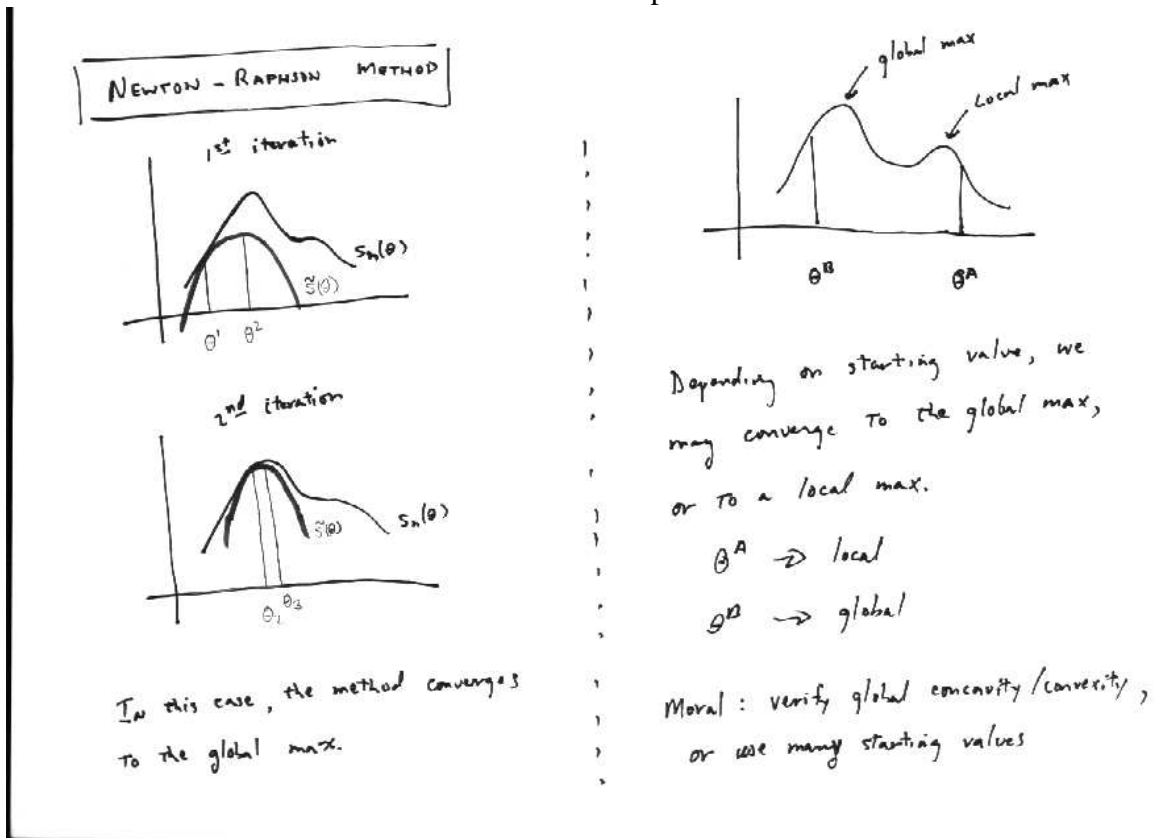 NEWTON - RAPHSON METHOD
1st iteration
Sn(θ)
S̃(θ)
θ¹ θ²
2nd iteration
Sn(θ)
S̃(θ)
θ₂ θ₃
IN this case, the method converges
to the global max.
global max
Local max
θᴮ θᴬ
Depending on starting value, we
may converge to the global max,
or to a local max.
θᴬ → local
θᴮ → global
Moral : verify global concavity/convexity,
or use many starting values